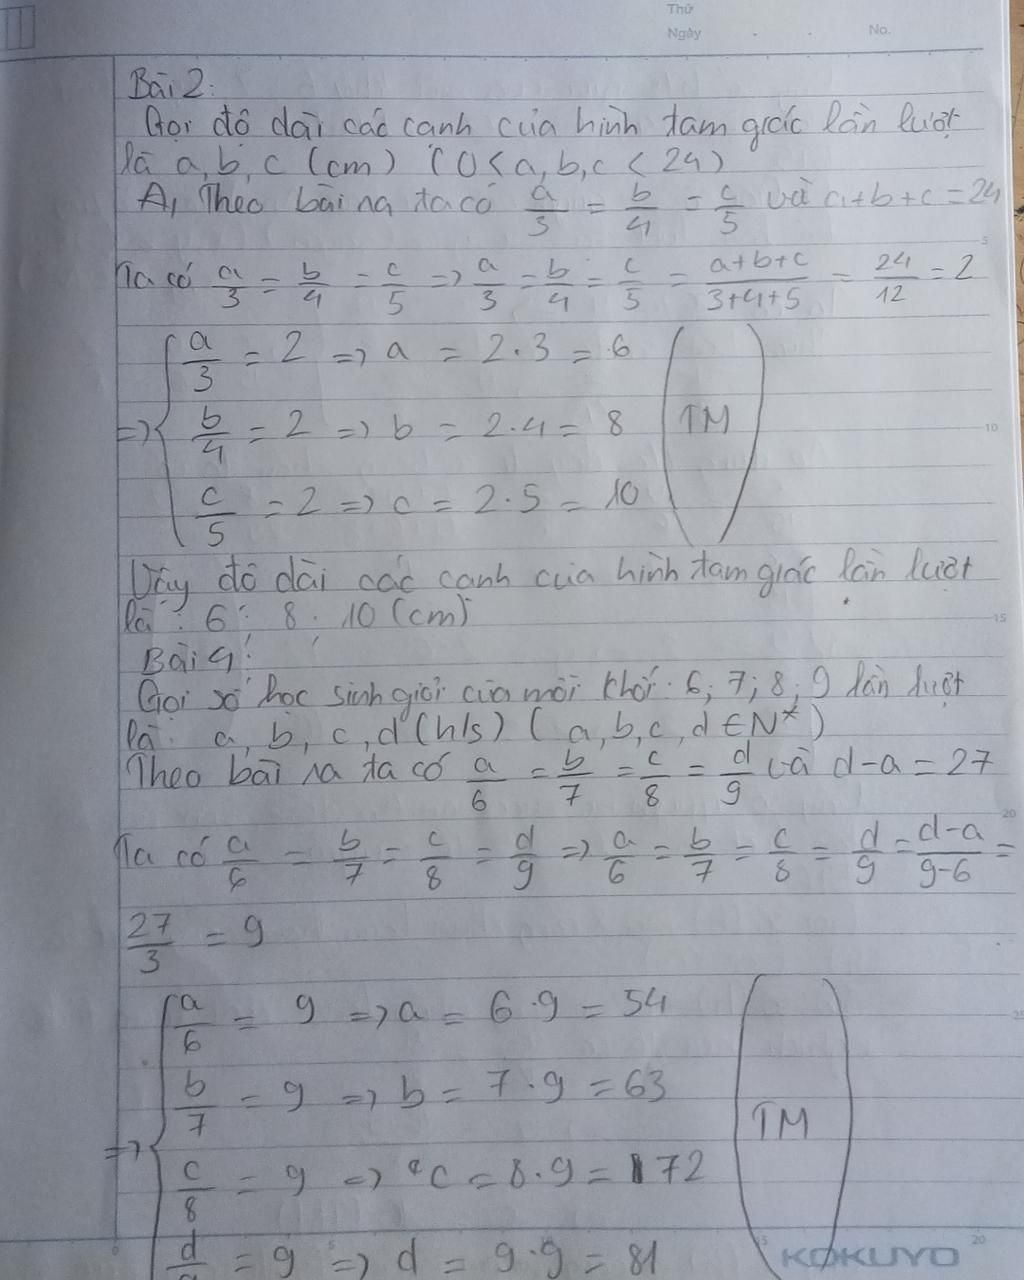 Thứ
Ngày - . No.
Bài 2:
Gọi độ dài các cạnh của hình tam giác lần lượt
là a, b, c (cm) (0 < a, b, c < 24)
A, Theo bài ra ta có a/3 = b/4 = c/5 và a+b+c = 24
Ta có a/3 = b/4 = c/5 => a/3 = b/4 = c/5 = a+b+c/3+4+5 = 24/12 = 2
a/3 = 2 => a = 2.3 = 6
=> b/4 = 2 => b = 2.4 = 8 (TM)
c/5 = 2 => c = 2.5 = 10
Vậy độ dài các cạnh của hình tam giác lần lượt
là: 6; 8; 10 (cm)
Bài 4:
Gọi số học sinh giỏi của mỗi khối: 6; 7; 8; 9 lần lượt
là: a, b, c, d (h/s) (a, b, c, d ∈ N*)
Theo bài ra ta có a/6 = b/7 = c/8 = d/9 và d-a = 27
Ta có a/6 = b/7 = c/8 = d/9 => a/6 = b/7 = c/8 = d/9 = d-a/9-6 =
27/3 = 9
a/6 = 9 => a = 6.9 = 54
b/7 = 9 => b = 7.9 = 63
=> c/8 = 9 => c = 8.9 = 72 (TM)
d/9 = 9 => d = 9.9 = 81
KOKUYO
5
10
15
20
25
5
15
20